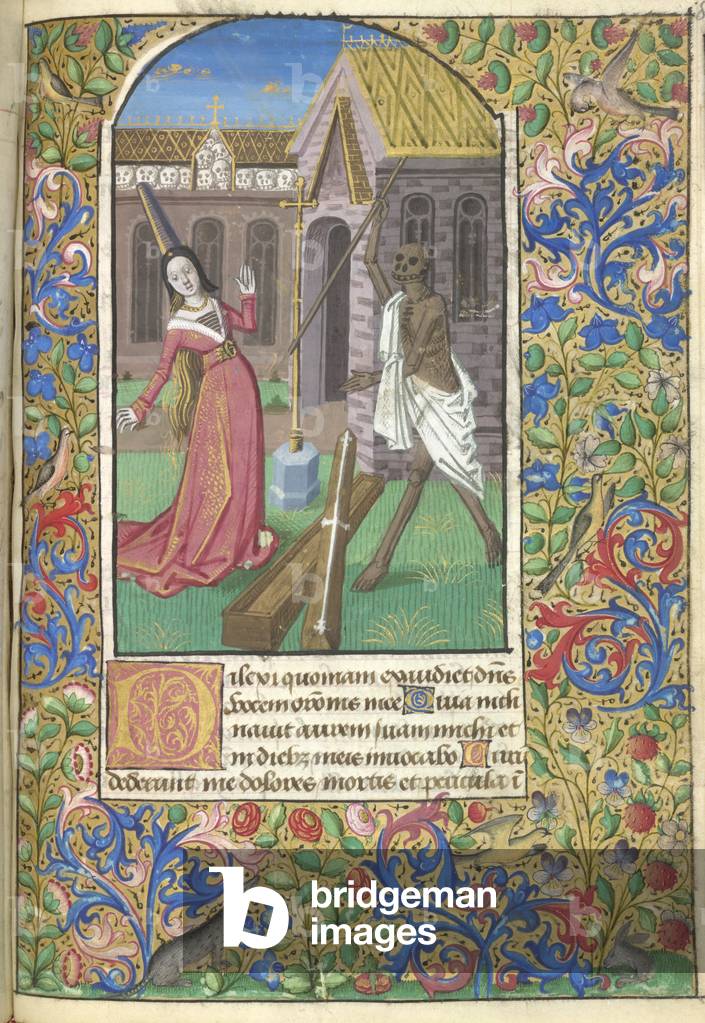 Dilexi quoniam exaudiet dñs
vocem orõnis mee Quia incli
nauit aurem suam michi et
in diebȝ meis inuocabo Circū
dederunt me dolores mortis et pericula ī
bridgeman
images